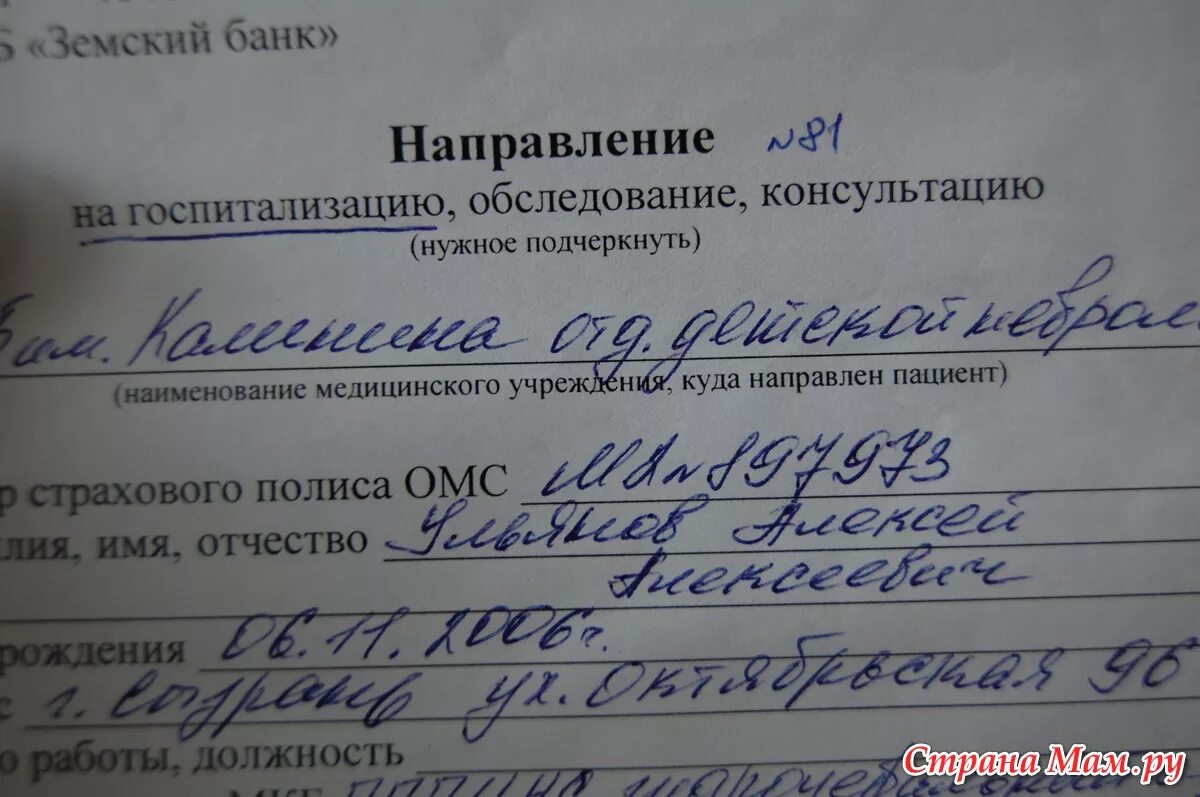 Б «Земский банк»
Направление №81
на госпитализацию, обследование, консультацию
(нужное подчеркнуть)
им. Калинина отд. детской неврол
(наименование медицинского учреждения, куда направлен пациент)
р страхового полиса ОМС № 897973
илия, имя, отчество Ульянов Алексей
Алексеевич
рождения 06.11.2006г.
с г. Сызрань ул. Октябрьская 96
о работы, должность
Страна Мам.ру